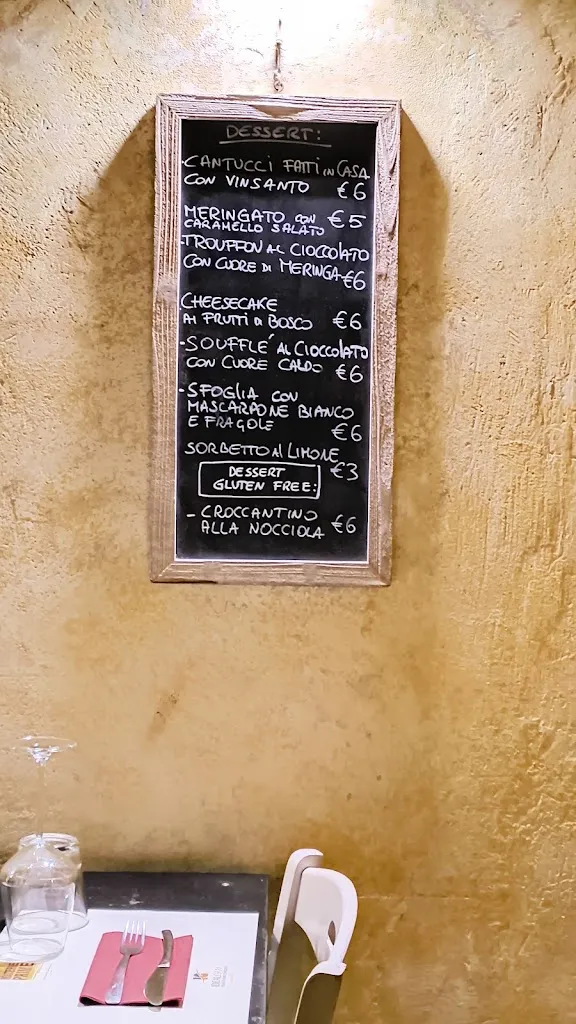 DESSERT:
-CANTUCCI FATTI IN CASA
CON VINSANTO €6
MERINGATO CON €5
CARAMELLO SALATO
-TROUFFON AL CIOCCOLATO
CON CUORE DI MERINGA €6
CHEESECAKE
AI FRUTTI DI BOSCO €6
-SOUFFLE' AL CIOCCOLATO
CON CUORE CALDO €6
-SFOGLIA CON
MASCARPONE BIANCO
E FRAGOLE €6
SORBETTO AL LIMONE
€3
DESSERT
GLUTEN FREE:
- CROCCANTINO
ALLA NOCCIOLA €6